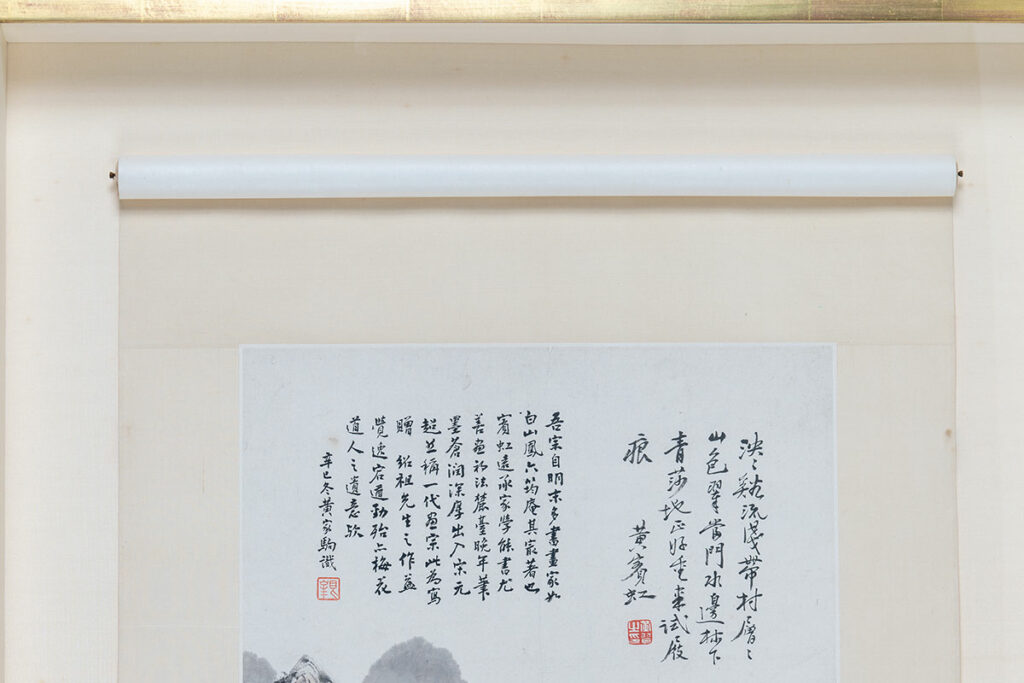 泱〻谿流淺帶村層〻
山色翠當門水邊林下
青莎地正好重來試屐
痕 黃賓虹
吾宗自明末多書畫家如
白山鳳六筠庵其最著也
賓虹遠承家學能書尤
善畫初法麓臺晚年筆
墨蒼潤深厚出入宋元
超稱一代畫宗此為寫
贈 紹祖先生之作益
覺宕遒勁殆亦梅花
道人之遺意歟
辛巳冬黃家駒識